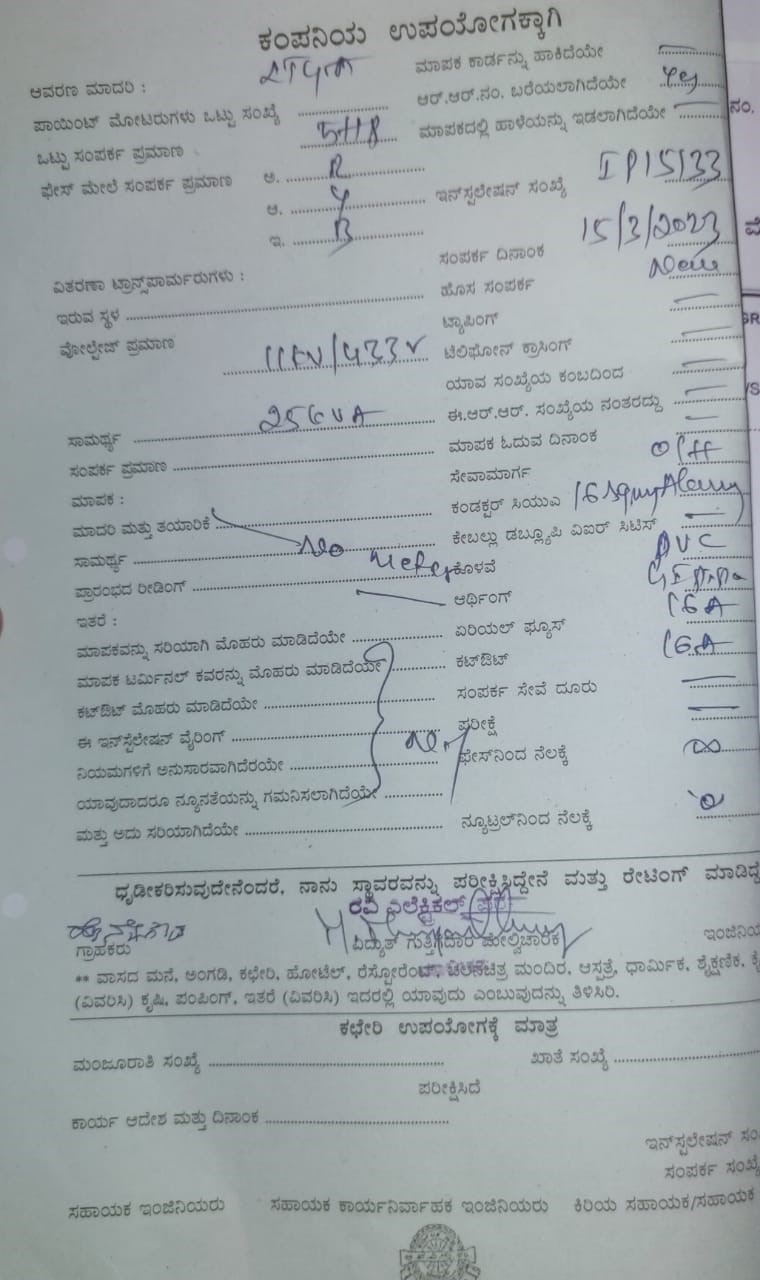 ಕಂಪನಿಯ ಉಪಯೋಗಕ್ಕಾಗಿ
ಆವರಣ ಮಾದರಿ :
ಮಾಪಕ ಕಾರ್ಡನ್ನು ಹಾಕಿದೆಯೇ
ಪಾಯಿಂಟ್ ಮೋಟರುಗಳು ಒಟ್ಟು ಸಂಖ್ಯೆ
ಆರ್.ಆರ್.ನಂ. ಬರೆಯಲಾಗಿದೆಯೇ yes
ಒಟ್ಟು ಸಂಪರ್ಕ ಪ್ರಮಾಣ 5HP
ಮಾಪಕದಲ್ಲಿ ಹಾಳೆಯನ್ನು ಇಡಲಾಗಿದೆಯೇ ನಂ.
ಫೇಸ್ ಮೇಲೆ ಸಂಪರ್ಕ ಪ್ರಮಾಣ ಅ. R
ಆ. Y
ಇನ್‌ಸ್ಟಲೇಷನ್ ಸಂಖ್ಯೆ IP15133
ಇ. B
ಸಂಪರ್ಕ ದಿನಾಂಕ 15/3/2023
ವಿತರಣಾ ಟ್ರಾನ್ಸ್‌ಪಾರ್ಮರುಗಳು :
ಹೊಸ ಸಂಪರ್ಕ New
ಇರುವ ಸ್ಥಳ
ಟ್ಯಾಪಿಂಗ್
ವೋಲ್ಟೇಜ್ ಪ್ರಮಾಣ 11KV/433V
ಟೆಲಿಫೋನ್ ಕ್ರಾಸಿಂಗ್
ಯಾವ ಸಂಖ್ಯೆಯ ಕಂಬದಿಂದ
ಸಾಮರ್ಥ್ಯ 25KVA
ಈ.ಆರ್.ಆರ್. ಸಂಖ್ಯೆಯ ನಂತರದ್ದು
ಸಂಪರ್ಕ ಪ್ರಮಾಣ
ಮಾಪಕ ಓದುವ ದಿನಾಂಕ
ಮಾಪಕ :
ಸೇವಾಮಾರ್ಗ O/H
ಮಾದರಿ ಮತ್ತು ತಯಾರಿಕೆ
ಕಂಡಕ್ಟರ್ ಸಿಯುಎ
ಸಾಮರ್ಥ್ಯ No Meter
ಕೇಬಲ್ಲು ಡಬ್ಲ್ಯೂಪಿ ವಿಐರ್ ಸಿಟಿಸ್
ಪ್ರಾರಂಭದ ರೀಡಿಂಗ್
ಕೊಳವೆ PVC
ಇತರೆ :
ಆರ್ಥಿಂಗ್
ಮಾಪಕವನ್ನು ಸರಿಯಾಗಿ ಮೊಹರು ಮಾಡಿದೆಯೇ
ಏರಿಯಲ್ ಫ್ಯೂಸ್ 16A
ಮಾಪಕ ಟರ್ಮಿನಲ್ ಕವರನ್ನು ಮೊಹರು ಮಾಡಿದೆಯೇ
ಕಟ್‌ಔಟ್ 16A
ಕಟ್‌ಔಟ್ ಮೊಹರು ಮಾಡಿದೆಯೇ
ಸಂಪರ್ಕ ಸೇವೆ ದೂರು
ಈ ಇನ್‌ಸ್ಟಲೇಷನ್ ವೈರಿಂಗ್
ಪರೀಕ್ಷೆ
ನಿಯಮಗಳಿಗೆ ಅನುಸಾರವಾಗಿದೆರಯೇ
ಫೇಸ್‌ನಿಂದ ನೆಲಕ್ಕೆ ∞
ಯಾವುದಾದರೂ ನ್ಯೂನತೆಯನ್ನು ಗಮನಿಸಲಾಗಿದೆಯೇ
ಮತ್ತು ಅದು ಸರಿಯಾಗಿದೆಯೇ
ನ್ಯೂಟ್ರಲ್‌ನಿಂದ ನೆಲಕ್ಕೆ
ಧೃಡೀಕರಿಸುವುದೇನೆಂದರೆ, ನಾನು ಸ್ಥಾವರವನ್ನು ಪರೀಕ್ಷಿಸಿದ್ದೇನೆ ಮತ್ತು ರೇಟಿಂಗ್ ಮಾಡಿದ್ದೆ
ರವಿ ಎಲೆಕ್ಟ್ರಿಕಲ್
ಗ್ರಾಹಕರು
ವಿದ್ಯುತ್ ಗುತ್ತಿಗೆದಾರ ಮೇಲ್ವಿಚಾರಕ
ಇಂಜಿನಿಯ
** ವಾಸದ ಮನೆ, ಅಂಗಡಿ, ಕಛೇರಿ, ಹೋಟೆಲ್, ರೆಸ್ಟೋರೆಂಟ್, ಚಲನಚಿತ್ರ ಮಂದಿರ, ಆಸ್ಪತ್ರೆ, ಧಾರ್ಮಿಕ, ಶೈಕ್ಷಣಿಕ, ಕೈ
(ವಿವರಿಸಿ) ಕೃಷಿ, ಪಂಪಿಂಗ್, ಇತರೆ (ವಿವರಿಸಿ) ಇದರಲ್ಲಿ ಯಾವುದು ಎಂಬುವುದನ್ನು ತಿಳಿಸಿರಿ.
ಕಛೇರಿ ಉಪಯೋಗಕ್ಕೆ ಮಾತ್ರ
ಮಂಜೂರಾತಿ ಸಂಖ್ಯೆ
ಖಾತೆ ಸಂಖ್ಯೆ
ಪರೀಕ್ಷಿಸಿದೆ
ಕಾರ್ಯ ಆದೇಶ ಮತ್ತು ದಿನಾಂಕ
ಇನ್‌ಸ್ಟಲೇಷನ್ ಸಂ
ಸಂಪರ್ಕ ಸಂಖ್ಯೆ
ಸಹಾಯಕ ಇಂಜಿನಿಯರು ಸಹಾಯಕ ಕಾರ್ಯನಿರ್ವಾಹಕ ಇಂಜಿನಿಯರು ಕಿರಿಯ ಸಹಾಯಕ/ಸಹಾಯಕ